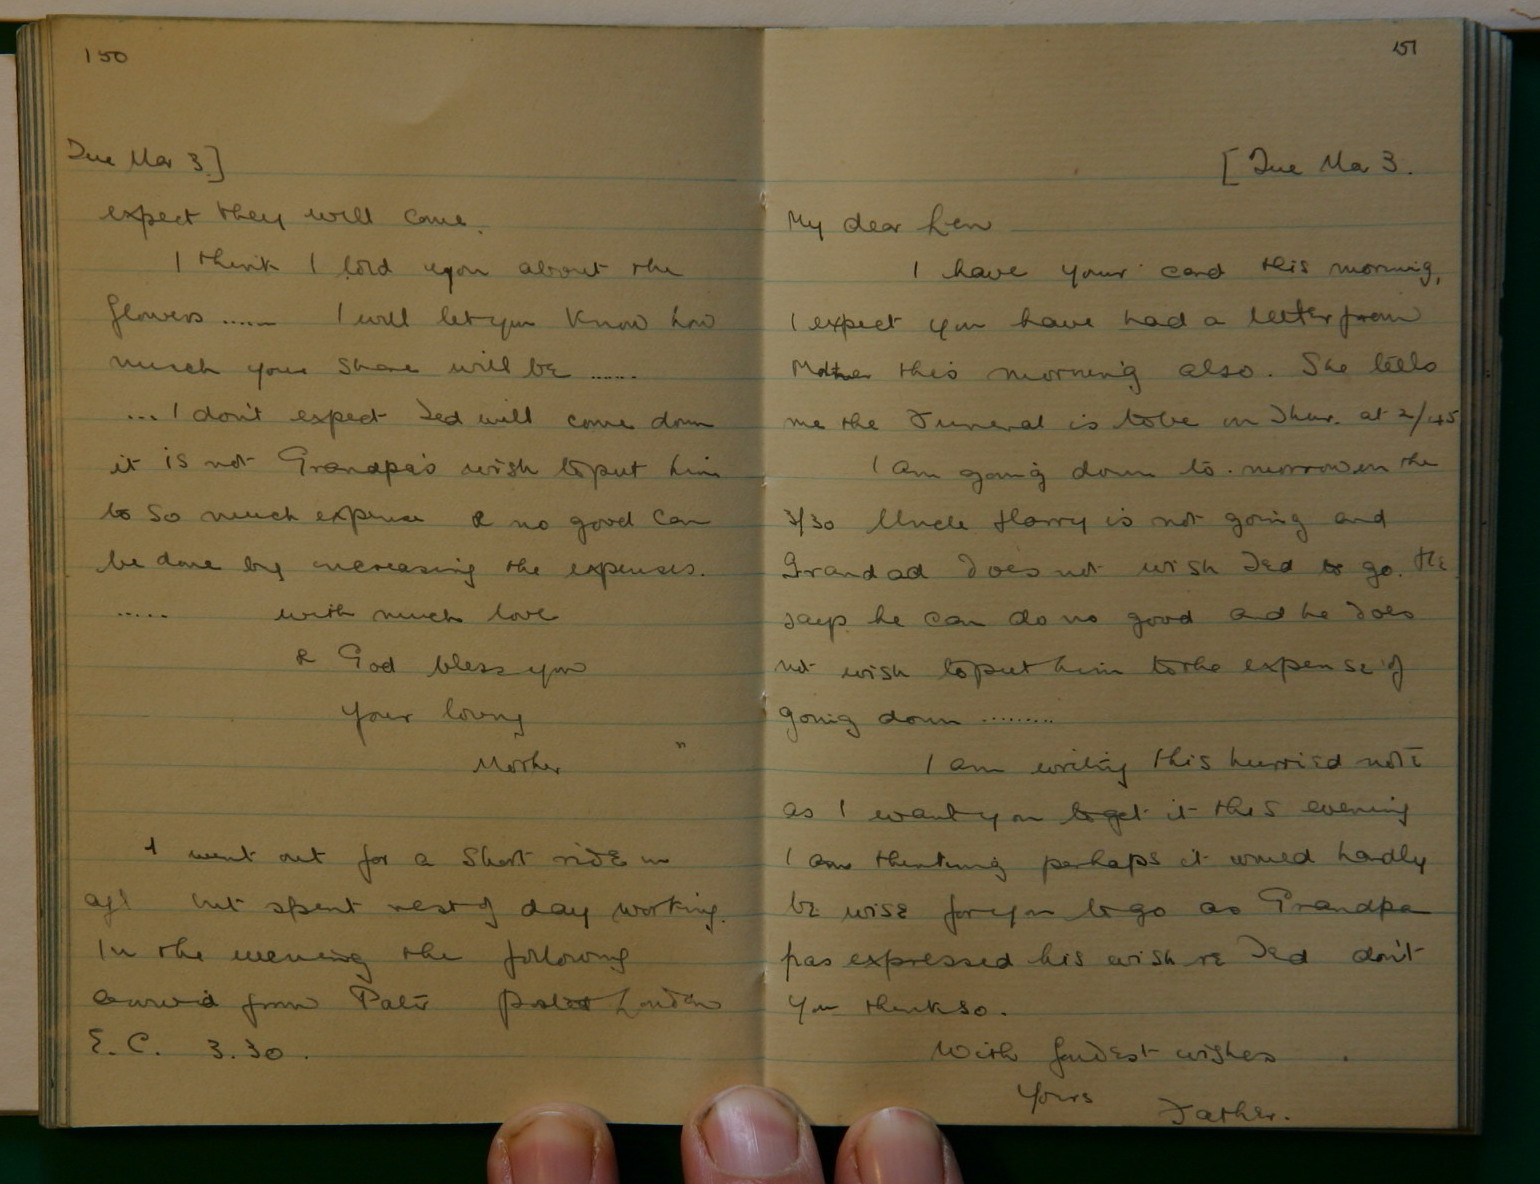 150
Tue Mar 3.]
expect they will come.
I think I told you about the
flowers ...... I will let you know how
much your share will be ......
... I don't expect Ted will come down
it is not Grandpa's wish to put him
to so much expense & no good can
be done by increasing the expenses.
..... with much love
& God bless you
Your loving
Mother "
I went out for a short ride in
aft but spent rest of day working.
In the evening the following
arrived from Pater posted London
E.C. 3.30.
151
[Tue Mar 3.
My dear Len
I have your card this morning,
I expect you have had a letter from
Mother this morning also. She tells
me the Funeral is to be on Thur. at 2/45
I am going down to-morrow on the
3/30 Uncle Harry is not going and
Grandad does not wish Ted to go. He
says he can do no good and he does
not wish to put him to the expense of
going down .........
I am writing this hurried note
as I want you to get it this evening
I am thinking perhaps it would hardly
be wise for you to go as Grandpa
has expressed his wish re Ted don't
you think so.
With fondest wishes
Yours Father.